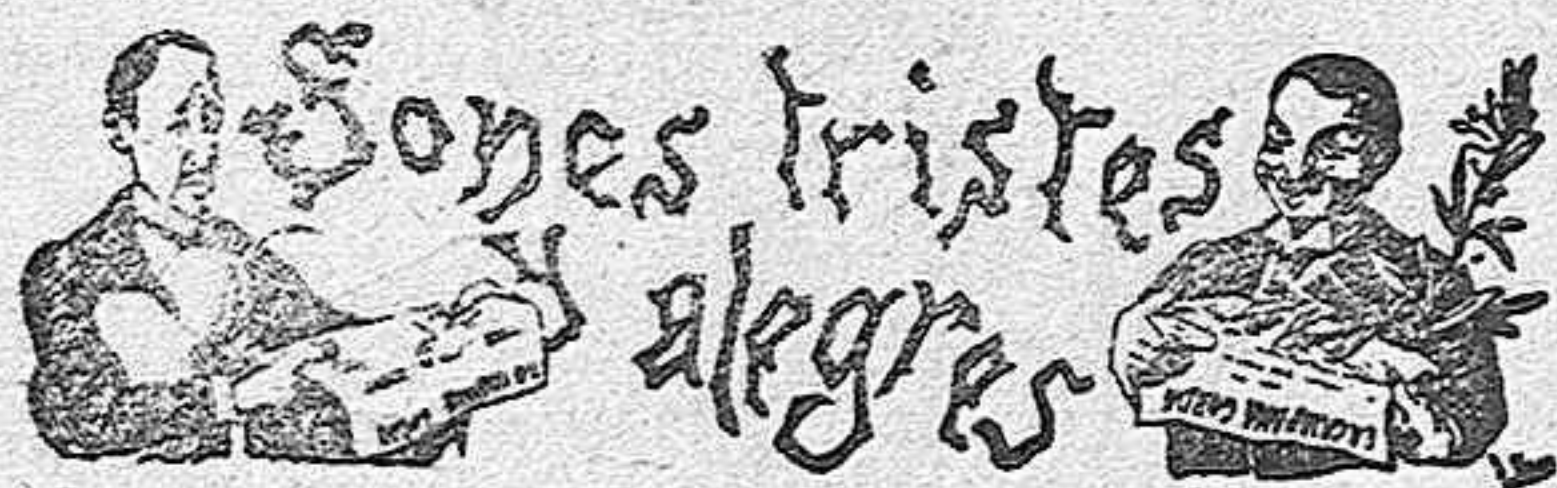 Sones tristes
y alegres